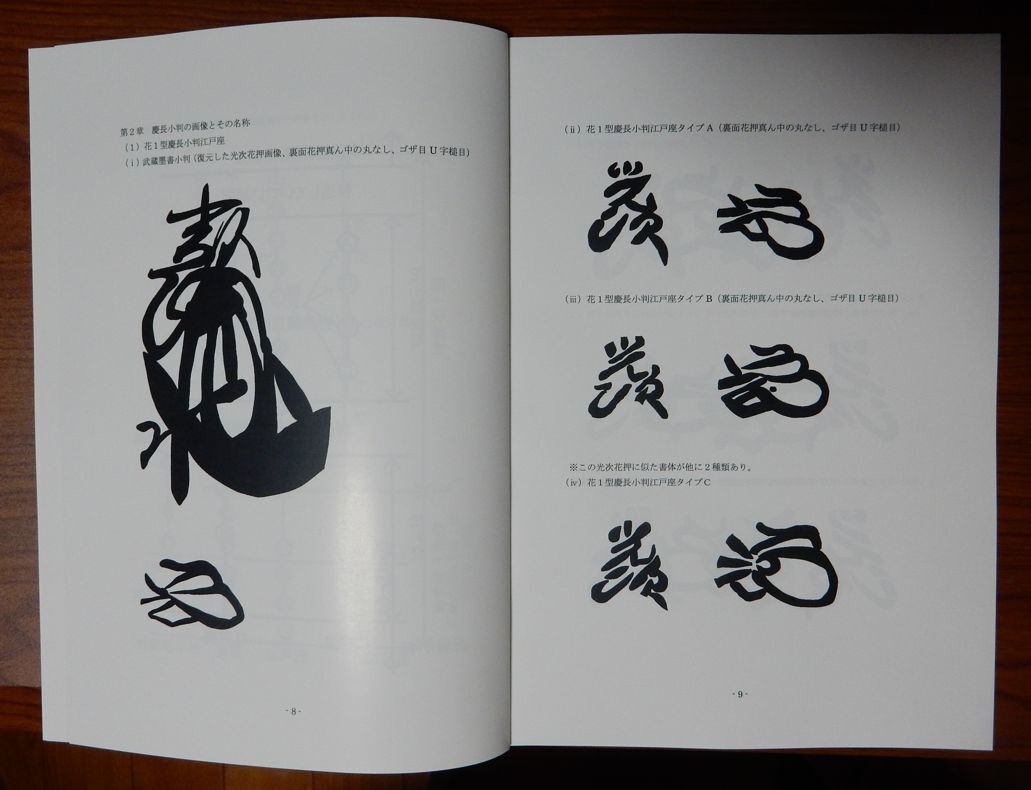 第２章　慶長小判の画像とその名称
（1）花１型慶長小判江戸座
（ⅰ）武蔵墨書小判（復元した光次花押画像、裏面花押真ん中の丸なし、ゴザ目 U 字槌目）
- 8 -
（ⅱ）花１型慶長小判江戸座タイプ A（裏面花押真ん中の丸なし、ゴザ目 U 字槌目）
（ⅲ）花１型慶長小判江戸座タイプ B（裏面花押真ん中の丸なし、ゴザ目 U 字槌目）
※この光次花押に似た書体が他に２種類あり。
（ⅳ）花１型慶長小判江戸座タイプＣ
- 9 -